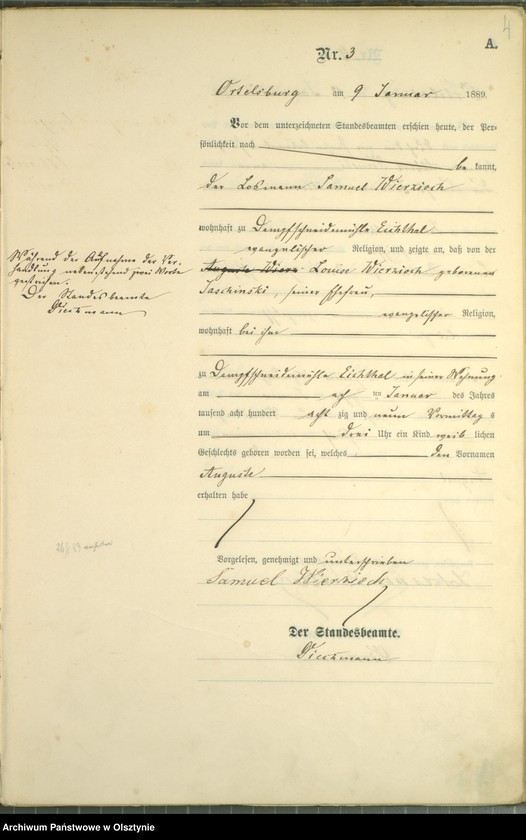 4
A.
Nr. 3
Ortelsburg am 9 Januar 1889.
Vor dem unterzeichneten Standesbeamten erschien heute, der Per-
sönlichkeit nach
be kannt,
der Losmann Samuel Wierzioch
wohnhaft zu Dampfschneidemühle Eichthal
evangelischer Religion, und zeigte an, daß von der
Auguste Wierz Louise Wierzioch geborenen
Jaschinski, seiner Ehefrau,
evangelischer Religion,
wohnhaft bei ihm
zu Dampfschneidemühle Eichthal in seiner Wohnung
am acht ten Januar des Jahres
tausend acht hundert acht zig und neun Vormittag s
um drei Uhr ein Kind weib lichen
Geschlechts geboren worden sei, welches den Vornamen
Auguste
erhalten habe
Vorgelesen, genehmigt und unterschrieben
Samuel Wierzioch
Der Standesbeamte.
Während der Aufnahme der Ver-
handlung nebenstehend zwei Worte
gestrichen.
Der Standesbeamte
Archiwum Państwowe w Olsztynie